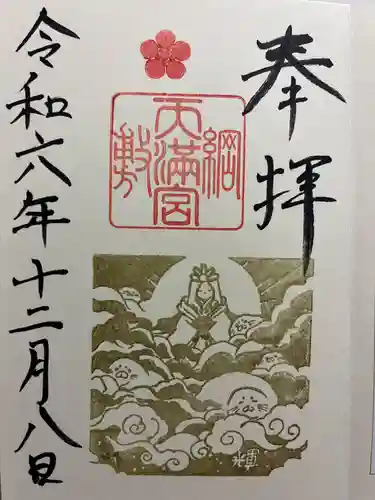 奉拝
綱敷天満宮
令和六年十二月八日
輝